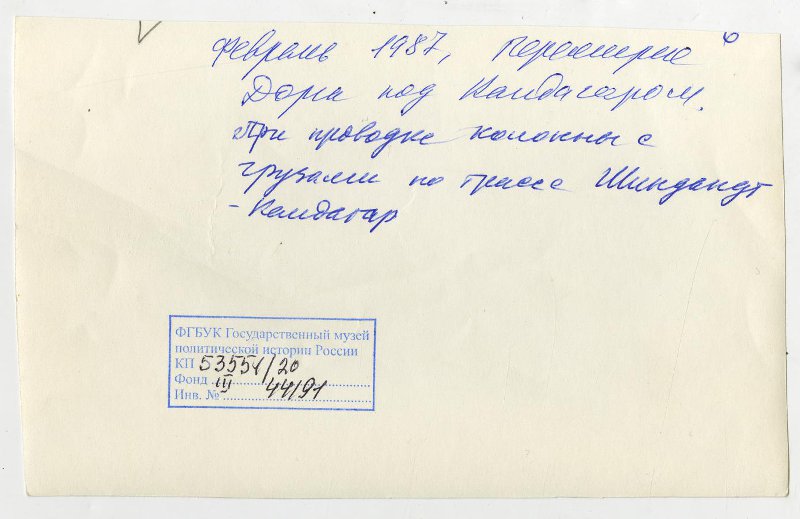 Февраль 1987, в
Дори под Кандагаром.
При проводке колонны с
грузами по трассе Шиндандт
- Кандагар
ФГБУК Государственный музей
политической истории России
КП 53551/20
Фонд III
Инв. № 44191